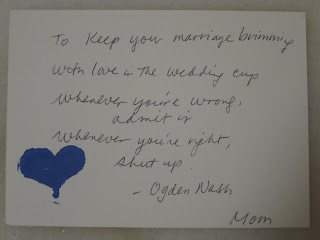 To Keep your marriage brimming
with love in the wedding cup
whenever you're wrong,
admit it
Whenever you're right,
shut up.
- Ogden Nash
Mom